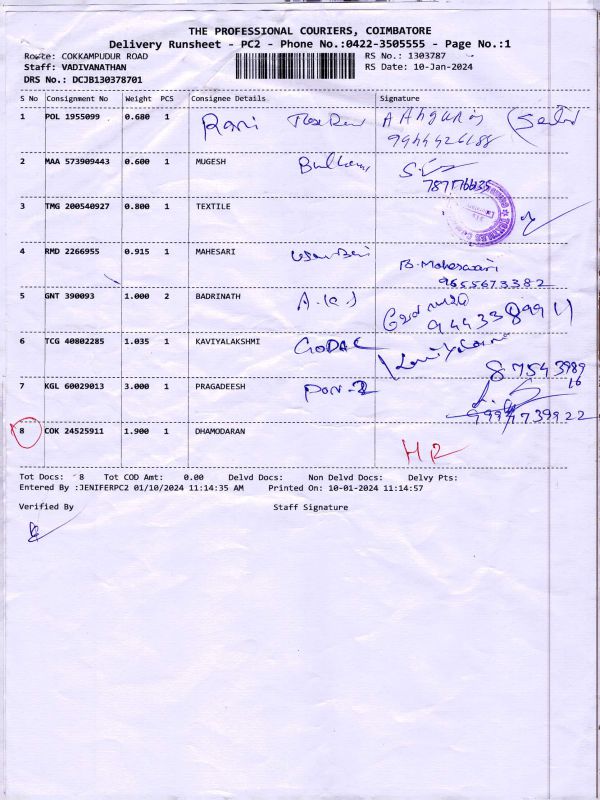 THE PROFESSIONAL COURIERS, COIMBATORE
Delivery Runsheet - PC2 - Phone No.:0422-3505555 - Page No.:1
Route: COKKAMPUDUR ROAD RS No.: 1303787
Staff: VADIVANATHAN RS Date: 10-Jan-2024
DRS No.: DCJB130378701
S No Consignment No Weight PCS Consignee Details Signature
1 POL 1955099 0.680 1 Rani
2 MAA 573909443 0.600 1 MUGESH
3 TMG 200540927 0.800 1 TEXTILE
4 RMD 2266955 0.915 1 MAHESARI B. Maheswari
9655673382
5 GNT 390093 1.000 2 BADRINATH
6 TCG 40802285 1.035 1 KAVIYALAKSHMI
8 7543989
16
7 KGL 60029013 3.000 1 PRAGADEESH
8 COK 24525911 1.900 1 DHAMODARAN
Tot Docs: 8 Tot COD Amt: 0.00 Delvd Docs: Non Delvd Docs: Delvy Pts:
Entered By :JENIFERPC2 01/10/2024 11:14:35 AM Printed On: 10-01-2024 11:14:57
Verified By Staff Signature